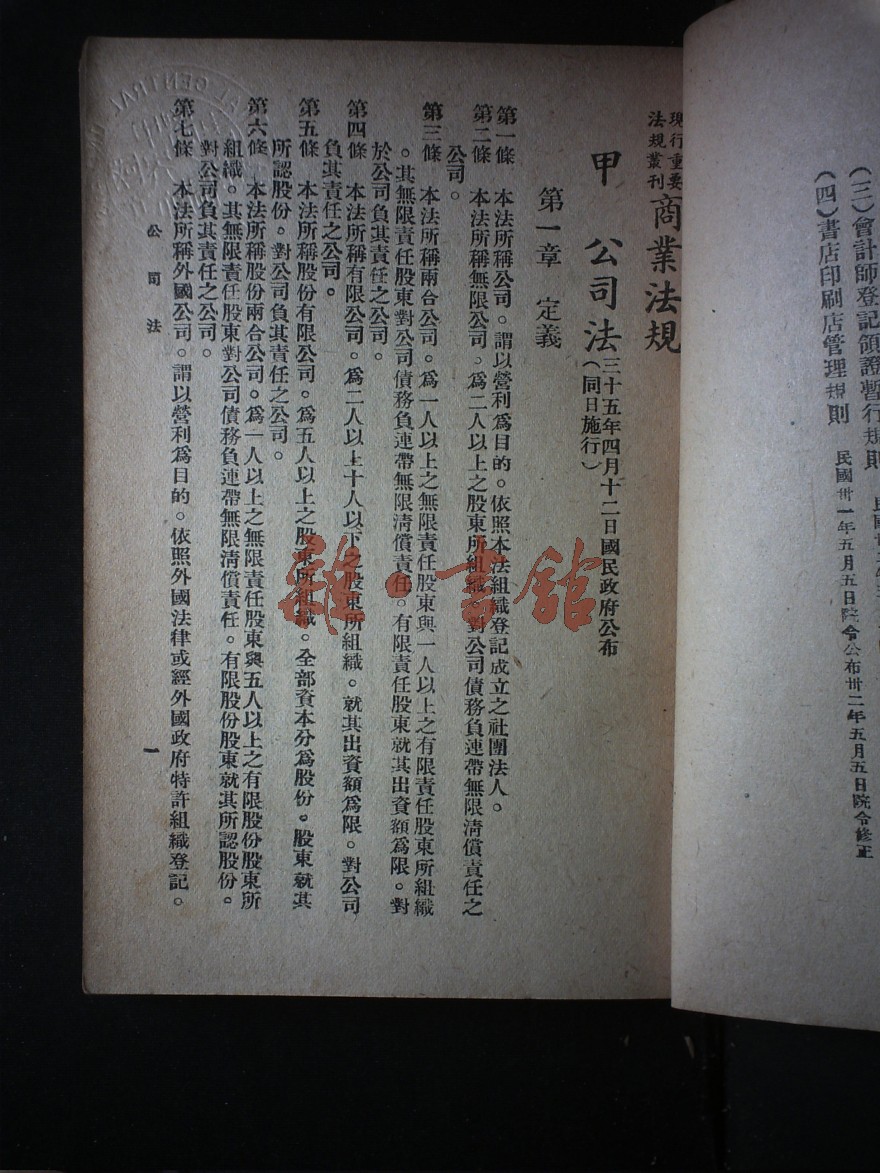 (三)會計師登記領證暫行規則
(四)書店印刷店管理規則 民國卅一年五月五日院令公布卅二年五月五日院令修正
現行重要
法規叢刊
商業法規
甲 公司法
三十五年四月十二日國民政府公布
(同日施行)
第一章 定義
第一條 本法所稱公司。謂以營利爲目的。依照本法組織登記成立之社團法人。
第二條 本法所稱無限公司。爲二人以上之股東所組織。對公司債務負連帶無限清償責任之
公司。
第三條 本法所稱兩合公司。爲一人以上之無限責任股東與一人以上之有限責任股東所組織
。其無限責任股東對公司債務負連帶無限清償責任。有限責任股東就其出資額爲限。對
於公司負其責任之公司。
第四條 本法所稱有限公司。爲二人以上十人以下之股東所組織。就其出資額爲限。對公司
負其責任之公司。
第五條 本法所稱股份有限公司。爲五人以上之股東所組織。全部資本分爲股份。股東就其
所認股份。對公司負其責任之公司。
第六條 本法所稱股份兩合公司。爲一人以上之無限責任股東與五人以上之有限股份股東所
組織。其無限責任股東對公司債務負連帶無限清償責任。有限股份股東就其所認股份。
對公司負其責任之公司。
第七條 本法所稱外國公司。謂以營利爲目的。依照外國法律或經外國政府特許組織登記。
公司法
一
雞·書館
CENTRAL